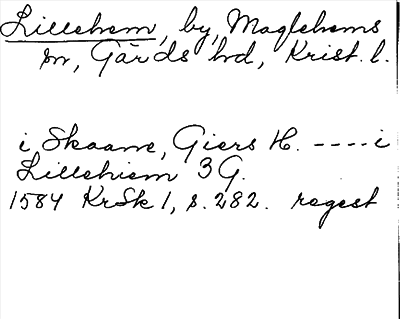 Lillehem, by, Maglehems
sn, Gärds hd, Krist. l.
i Skaane, Giers H. ---- i
Lillehiem 3 G.
1584 KrSk 1, s. 282. regest